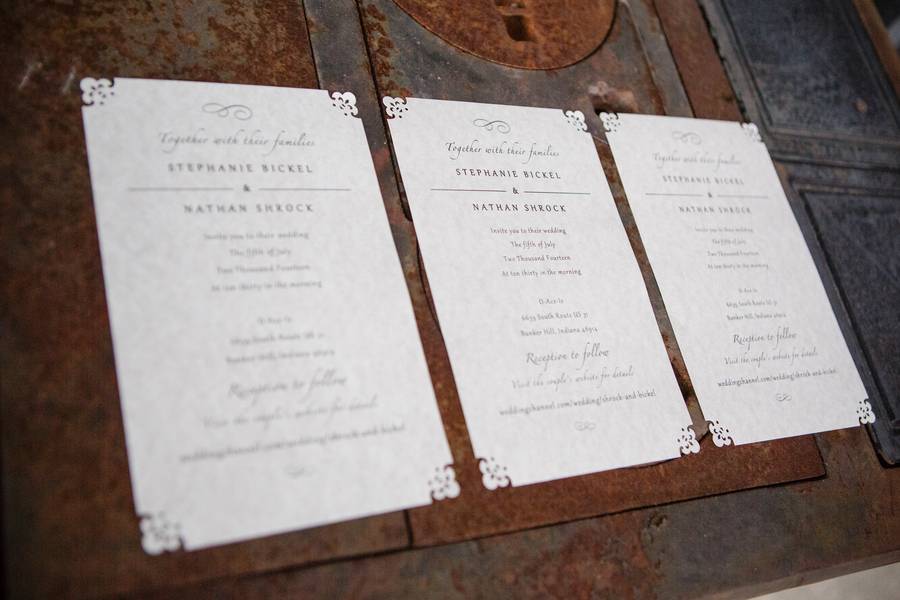 Together with their families
STEPHANIE BICKEL
&
NATHAN SHROCK
Invite you to their wedding
The fifth of July
Two Thousand Fourteen
At ten thirty in the morning
O-Acr-Io
6655 South Route US 31
Bunker Hill, Indiana 46914
Reception to follow
Visit the couple's website for details
weddingchannel.com/wedding/shrock-and-bickel
Together with their families
STEPHANIE BICKEL
&
NATHAN SHROCK
Invite you to their wedding
The fifth of July
Two Thousand Fourteen
At ten thirty in the morning
O-Acr-Io
6655 South Route US 31
Bunker Hill, Indiana 46914
Reception to follow
Visit the couple's website for details
weddingchannel.com/wedding/shrock-and-bickel
Together with their families
STEPHANIE BICKEL
&
NATHAN SHROCK
Invite you to their wedding
The fifth of July
Two Thousand Fourteen
At ten thirty in the morning
O-Acr-Io
6655 South Route US 31
Bunker Hill, Indiana 46914
Reception to follow
Visit the couple's website for details
weddingchannel.com/wedding/shrock-and-bickel